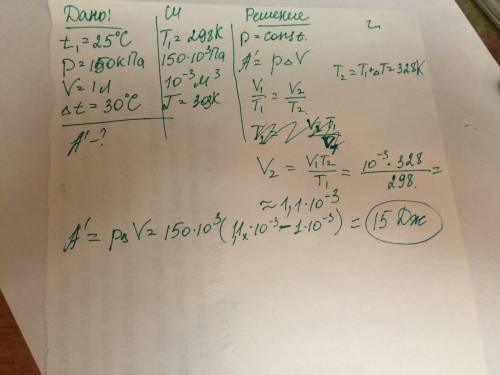 Дано:
t₁ = 25°C
P = 150 кПа
V = 1 л
Δt = 30°C
A' - ?
СИ
T₁ = 298К
150·10³ Па
10⁻³ м³
T = 303К
Решение
P = const.
A' = pΔV
V₁/T₁ = V₂/T₂
T₂ = T₁ + ΔT = 328К
V₂ = V₁T₂/T₁ = 10⁻³ · 328/298. =
≈ 1,1·10⁻³
A' = pΔV = 150·10³ (1,1·10⁻³ - 1·10⁻³) = 15 Дж